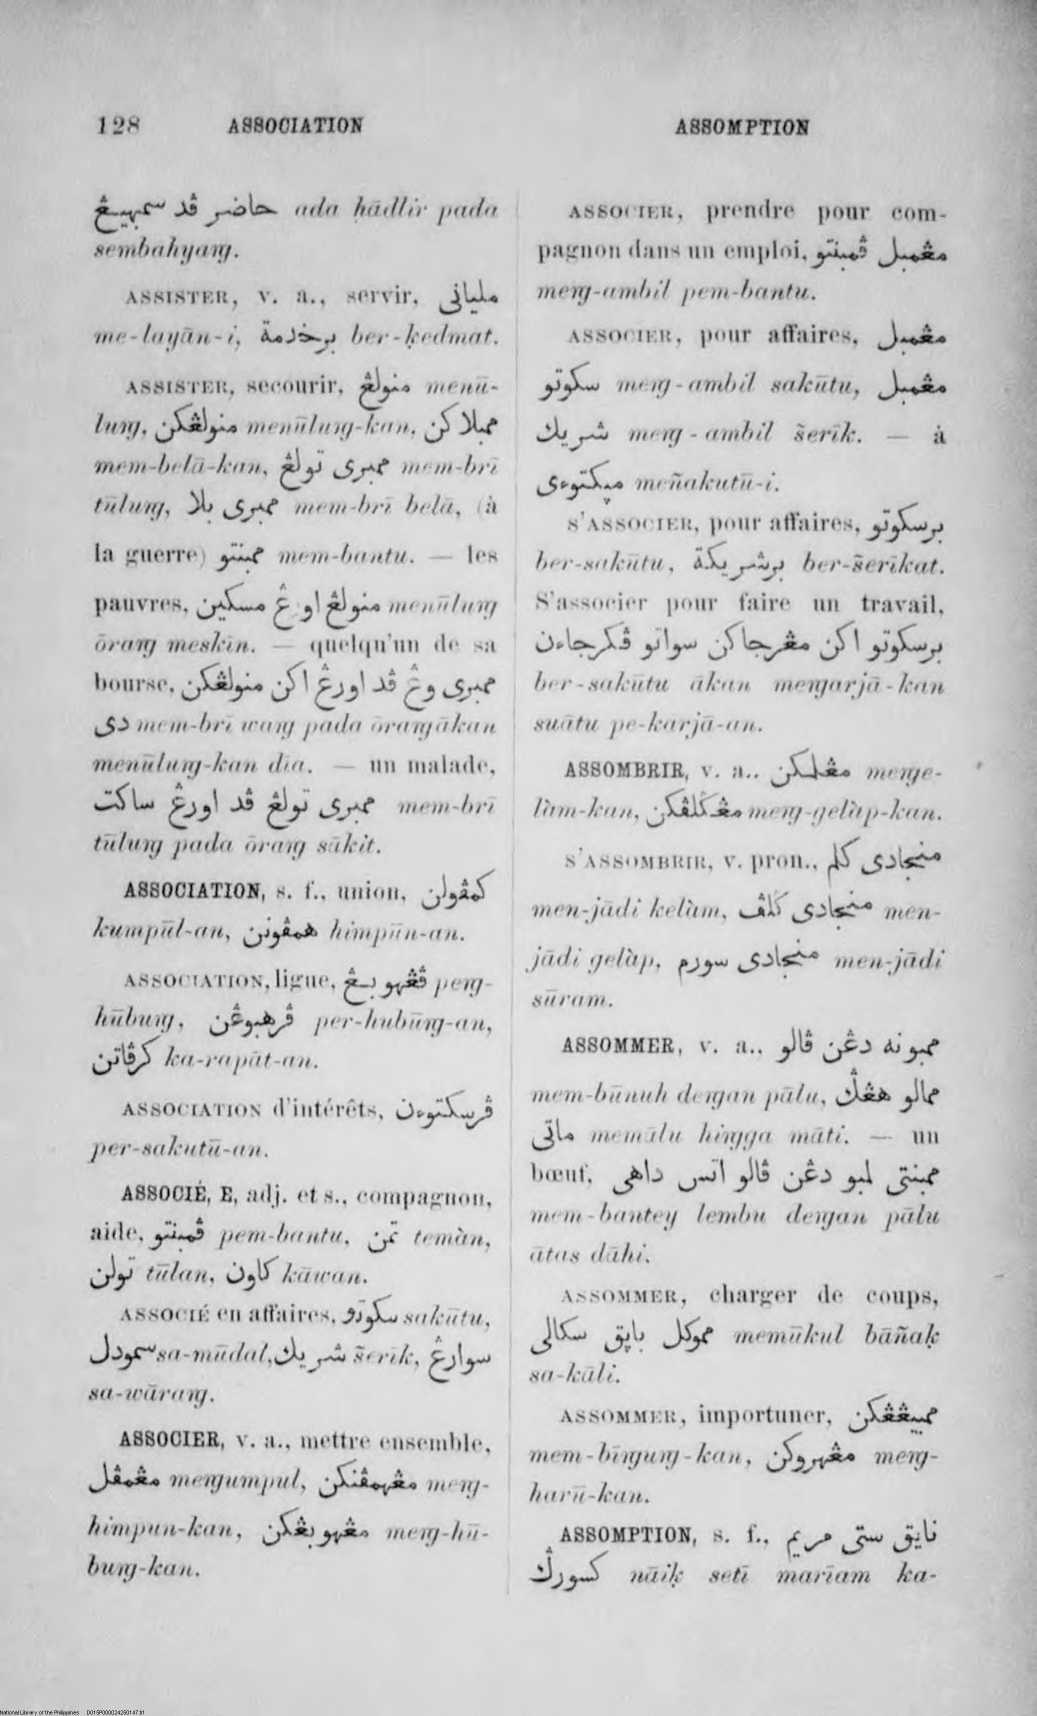 128 ASSOCIATION ASSOMPTION
حاضر ڤد سمبهيڠ ada ḥādlir pada
sembahyaṛg.
ASSISTER, v. a., servir, مليانى
me-layān-i, برخدمة ber-ḳedmat.
ASSISTER, secourir, منولڠ menū-
luṛg, منولڠكن menūluṛg-kan, ممبلاكن
mem-belā-kan, ممبرى تولڠ mem-brī
tūluṛg, ممبرى بلا mem-brī belā, (à
la guerre) ممبنتو mem-bantu. — les
pauvres, منولڠ اورڠ مسكين menūluṛg
ōraṛg meskīn. — quelqu'un de sa
bourse, ممبرى وڠ ڤد اورڠ اكن منولڠكن
دى mem-brī waṛg pada ōraṛgākan
menūluṛg-kan dīa. — un malade,
ممبرى تولڠ ڤد اورڠ ساكت mem-brī
tūluṛg pada ōraṛg sākit.
ASSOCIATION, s. f., union, كمڤولن
kumpūl-an, همڤونن himpūn-an.
ASSOCIATION, ligue, ڤڠهوبڠ peṛg-
hūbuṛg, ڤرهبوڠن per-hubūṛg-an,
كرڤاتن ka-rapāt-an.
ASSOCIATION d'intérêts, ڤرسكتوءن
per-sakutū-an.
ASSOCIÉ, E, adj. et s., compagnon,
aide, ڤمبنتو pem-bantu, تمن temàn,
تولن tūlan, كاون kāwan.
ASSOCIÉ en affaires, سكوتو sakūtu,
سمودل sa-mūdal, شريك šerīk, سوارڠ
sa-wāraṛg.
ASSOCIER, v. a., mettre ensemble,
مڠمڤل meṛgumpul, مڠهمڤنكن meṛg-
himpun-kan, مڠهوبڠكن meṛg-hū-
buṛg-kan.
ASSOCIER, prendre pour com-
pagnon dans un emploi, مڠمبل ڤمبنتو
meṛg-ambil pem-bantu.
ASSOCIER, pour affaires, مڠمبل
سكوتو meṛg-ambil sakūtu, مڠمبل
شريك meṛg-ambil šerīk. — à
مپكتوءى meñakutū-i.
S'ASSOCIER, pour affaires, برسكوتو
ber-sakūtu, برشريكة ber-šerīkat.
S'associer pour faire un travail,
برسكوتو اكن مڠرجاكن سواتو ڤكرجاءن
ber-sakūtu ākan meṛgarjā-kan
suātu pe-karjā-an.
ASSOMBRIR, v. a., مڠلمكن meṛge-
làm-kan, مڠݢلڤكن meṛg-gelàp-kan.
S'ASSOMBRIR, v. pron., منجادى كلم
men-jādi kelàm, منجادى ݢلڤ men-
jādi gelàp, منجادى سورم men-jādi
sūram.
ASSOMMER, v. a., ممبونه دڠن ڤالو
mem-būnuh deṛgan pālu, ممالو هڠݢ
ماتى memālu hiṛgga māti. — un
bœuf, ممبنتى لمبو دڠن ڤالو اتس داهى
mem-bantey lembu deṛgan pālu
ātas dāhi.
ASSOMMER, charger de coups,
مموكل باپق سكالى memūkul bāñaḳ
sa-kāli.
ASSOMMER, importuner, ممبيڠڠكن
mem-bīṛguṛg-kan, مڠهروكن meṛg-
harū-kan.
ASSOMPTION, s. f., نايق ستى مريم
كسورݢ nāiḳ setī marīam ka-
National Library of the Philippines